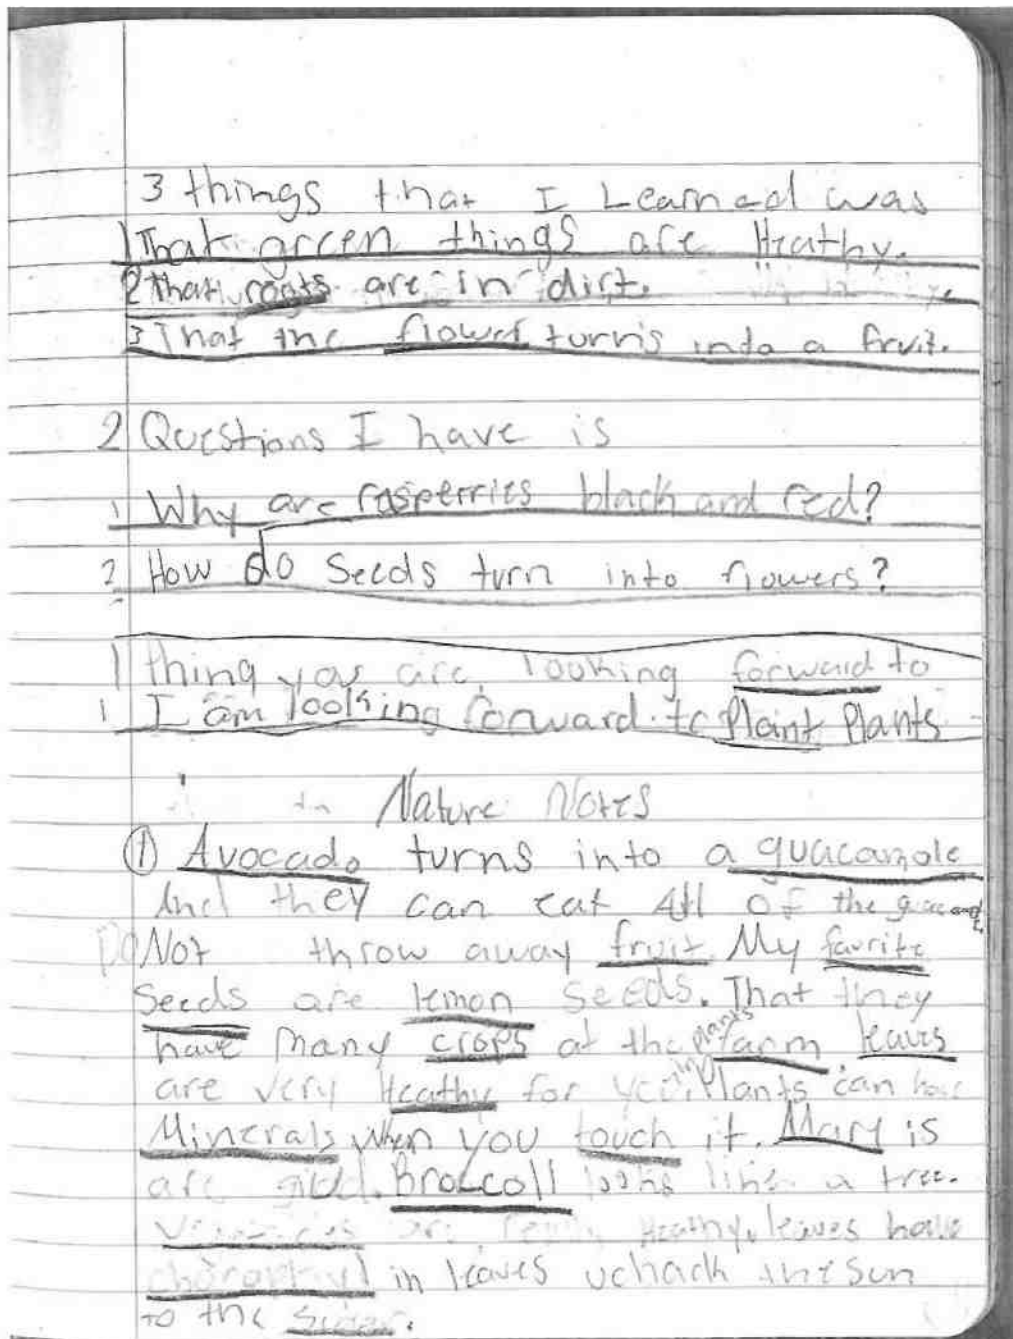 3 things that I Learned was
1 That green things are Heathy.
2 that roots are in dirt.
3 That the flower turns into a fruit.
2 Questions I have is
1 Why are rasperries black and red?
2 How do Seeds turn into flowers?
1 thing you are looking forward to
1 I am looking forward to Plaint Plants
Nature Notes
① Avocado turns into a guacamole
And they can eat All of the
Do Not throw away fruit. My favrite
Seeds are lemon seeds. That they
have many crops at the plants farm leaves
are very Heathy for you. Plants can have
Minerals when you touch it. Mary is
are gild. Broccoll looks like a tree.
are really Heathy. leaves have
in leaves the sun
to the sugar.